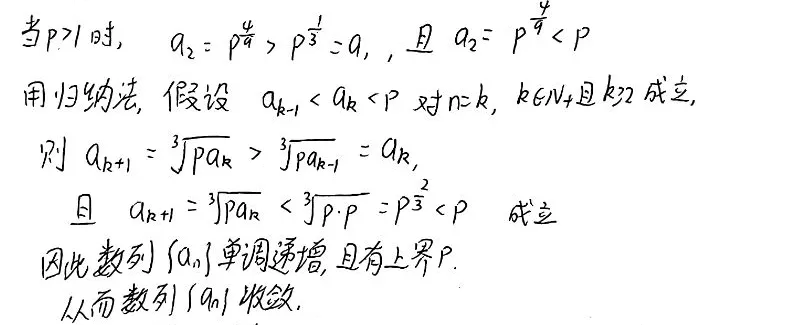 当p>1时, a₂=p^{4/9}>p^{1/3}=a₁, 且 a₂=p^{4/9}<p
用归纳法, 假设 a_{k-1}<a_k<p 对n=k, k∈N₊且k≥2 成立,
则 a_{k+1}=∛(pa_k)>∛(pa_{k-1})=a_k,
且 a_{k+1}=∛(pa_k)<∛(p·p)=p^{2/3}<p 成立
因此数列{aₙ}单调递增,且有上界p.
从而数列{aₙ}收敛.